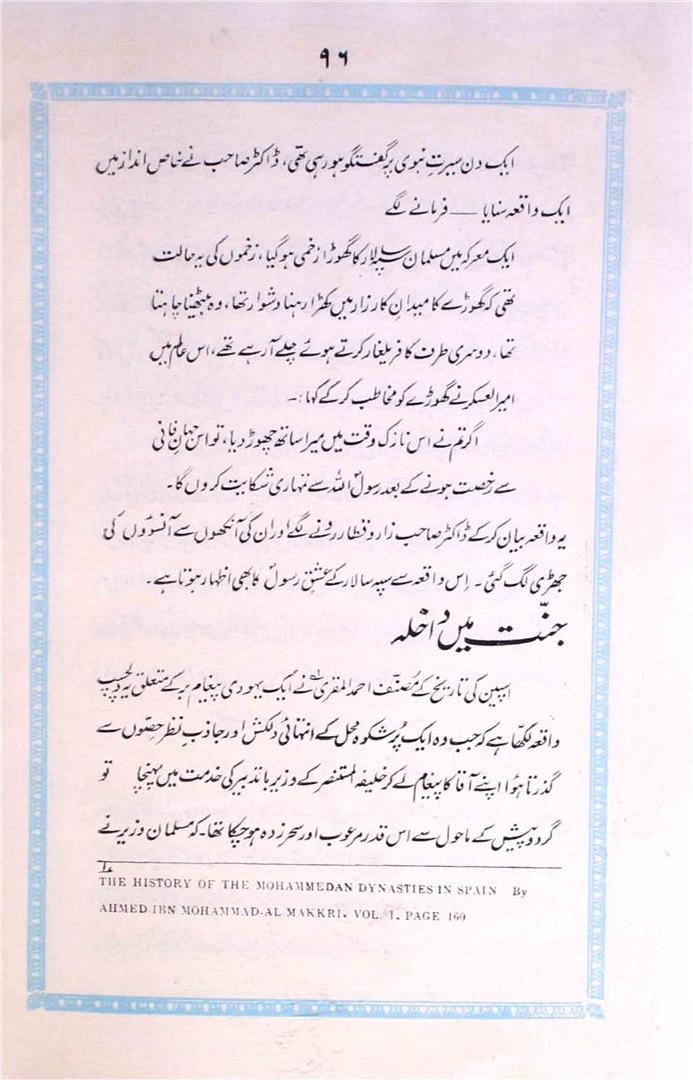 ۹۶
ایک دن سیرتِ نبوی پر گفتگو ہو رہی تھی، ڈاکٹر صاحب نے خاص انداز میں
ایک واقعہ سنایا — فرمانے لگے
ایک معرکہ میں مسلمان سپہ سالار کا گھوڑا زخمی ہو گیا، زخموں کی یہ حالت
تھی کہ گھوڑے کا میدانِ کارزار میں کھڑا رہنا دشوار تھا، وہ بیٹھنا چاہتا
تھا، دوسری طرف کافر یلغار کرتے ہوئے چلے آ رہے تھے، اس عالم میں
امیر العسکر نے گھوڑے کو مخاطب کر کے کہا:۔
اگر تم نے اس نازک وقت میں میرا ساتھ چھوڑ دیا، تو اس جہانِ فانی
سے رخصت ہونے کے بعد رسولؐ اللہ سے تمہاری شکایت کروں گا۔
یہ واقعہ بیان کر کے ڈاکٹر صاحب زار و قطار رونے لگے اور ان کی آنکھوں سے آنسوؤں کی
جھڑی لگ گئی۔ اِس واقعہ سے سپہ سالار کے عشقِ رسولؐ کا بھی اظہار ہوتا ہے۔
جنّت میں داخلہ
اسپین کی تاریخ کے مُصنّف احمد المقری؂۱ نے ایک یہودی پیغام بر کے متعلق یہ دلچسپ
واقعہ لکھا ہے کہ جب وہ ایک پُرشکوہ محل کے انتہائی دلکش اور جاذبِ نظر حصّوں سے
گذرتا ہُوا اپنے آقا کا پیغام لے کر خلیفہ المستنصر کے وزیر باتدبیر کی خدمت میں پہنچا تو
گرد و پیش کے ماحول سے اس قدر مرعوب اور سحرزدہ ہو چکا تھا۔ کہ مسلمان وزیر نے
؂۱
THE HISTORY OF THE MOHAMMEDAN DYNASTIES IN SPAIN By
AHMED IBN MOHAMMAD-AL MAKKRI. VOL. I. PAGE 160